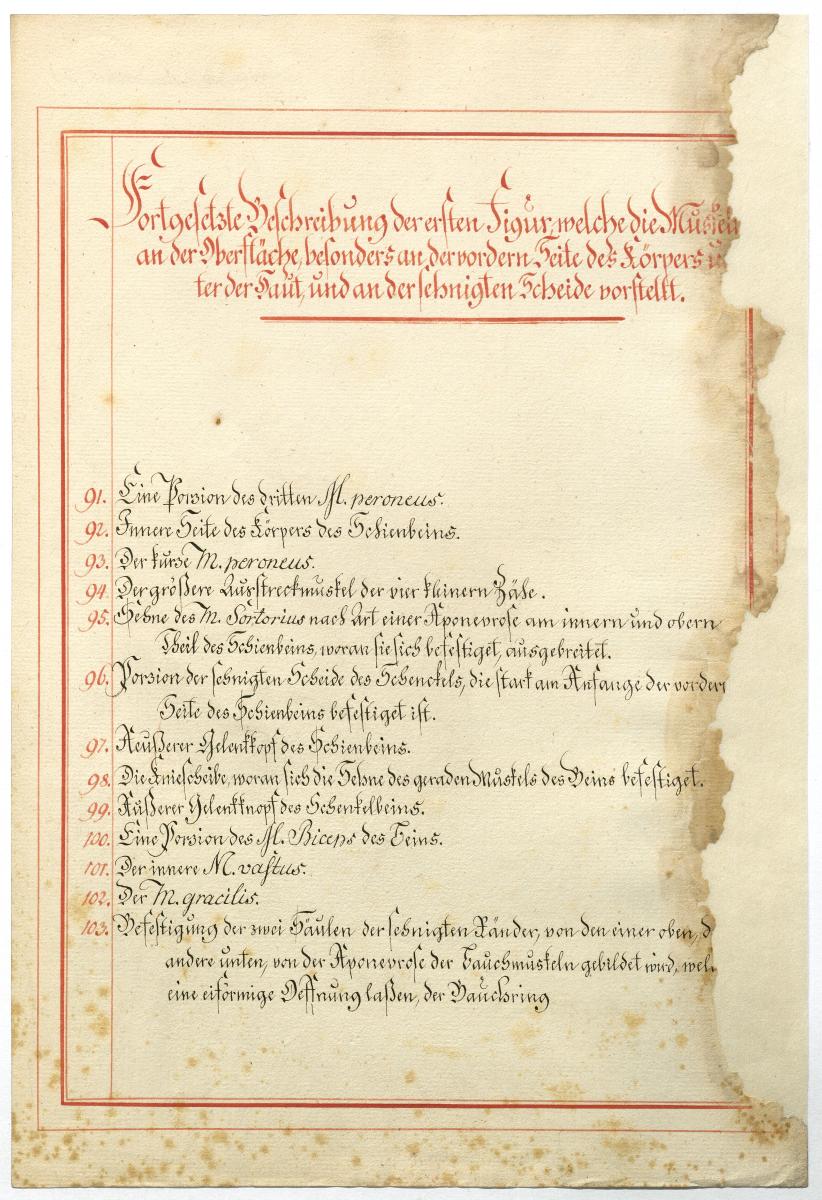 Fortgesetzte Beschreibung der ersten Figur, welche die Muskeln
an der Oberfläche, besonders an der vordern Seite des Körpers u
ter der Haut, und an der sehnigten Scheide vorstellt.
91. Eine Porzion des dritten M. peroneus.
92. Innere Seite des Körpers des Schienbeins.
93. Der kurze M. peroneus.
94. Der größere Ausstreckmuskel der vier kleinern Zähe.
95. Sehne des M. Sartorius nach Art einer Aponevrose am innern und obern
Theil des Schienbeins, woran sie sich befestiget, ausgebreitet.
96. Porzion der sehnigten Scheide des Schenckels, die stark am Anfange der vordern
Seite des Schienbeins befestiget ist.
97. Aeußerer Gelenkkopf des Schienbeins.
98. Die Kniescheibe, woran sich die Sehne des geraden Muskels des Beins befestiget.
99. Äußerer Gelenkknopf des Schenkelbeins.
100. Eine Porzion des M. Biceps des Beins.
101. Der innere M. vastus.
102. Der M. gracilis.
103. Befestigung der zwei Säulen der sehnigten Ränder, von den einer oben, d
andere unten, von der Aponevrose der Bauchmuskeln gebildet wird, wel
eine eiförmige Oeffnung laßen, der Bauchring